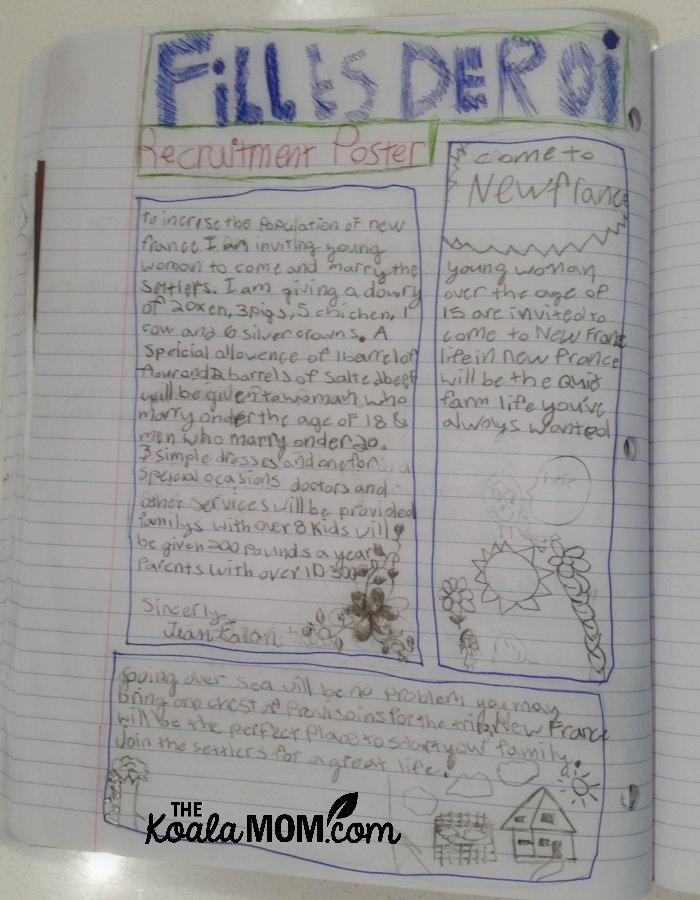 FiLLES DEROi
Recruitment Poster
to increse the population of new
france I am inviting young
woman to come and marry the
Settlers. I am giving a dowry
of 2oxen, 3pigs, 5 chichen, 1
cow and 6 silver crowns. A
Speicial allowence of 1barrel of
flour and 2 barrels of Salted beef
will be given to womah who
marry onder the age of 18 &
men who marry onder 20.
3 simple dresses and one for
special ocasions doctors and
other services will be provided
familys with over 8 kids will
be given 200 pounds a year
Parents with over 10 300
Sincerly
Jean Talon
come to
New france
young woman
over the age of
15 are invited to
come to New Franc
life in new france
will be the quit
farm life you've
always wanted
hele
going over sea will be no problem you may
bring one chest of provisoins for the trip, New France
will be the perfect place to start your family.
Join the settlers for a great life.
THE
Koala MOM.com